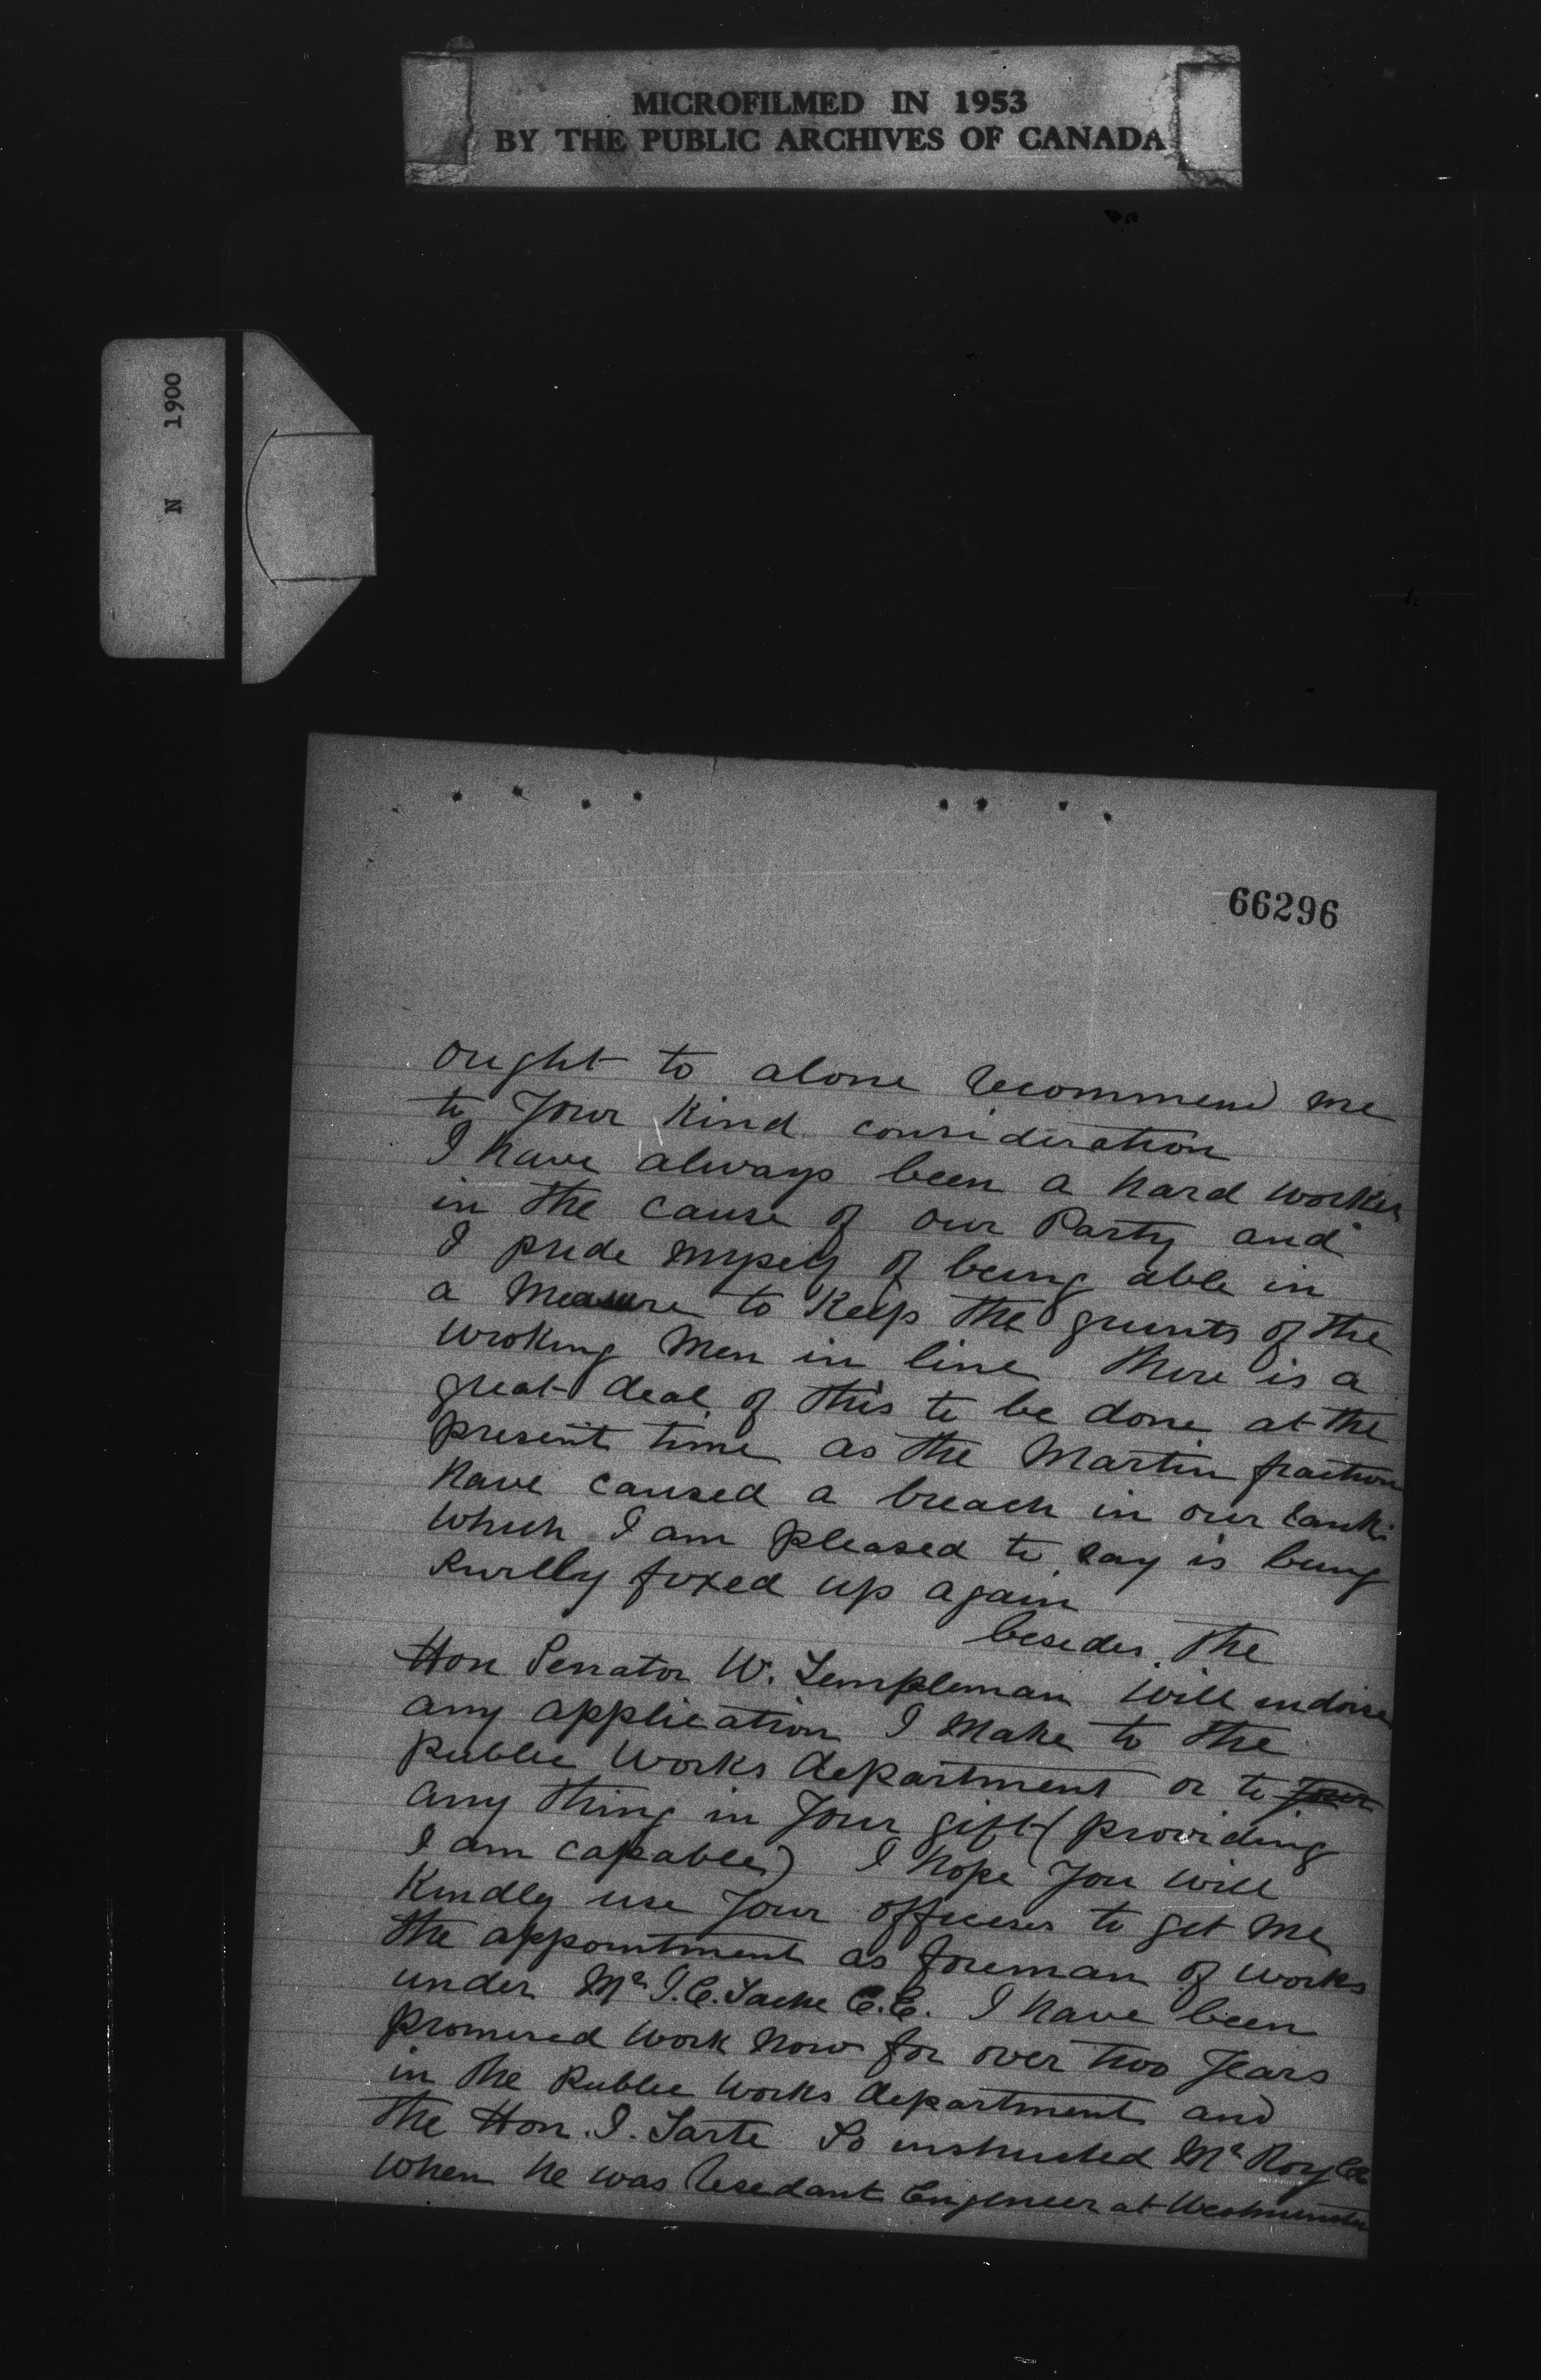 MICROFILMED IN 1953
BY THE PUBLIC ARCHIVES OF CANADA
N 1900
66296
ought to alone recommend me
to your kind consideration
I have always been a hard worker
in the cause of our Party and
I pride myself of being able in
a measure to keep the grunts of the
wroking men in line there is a
great deal of this to be done at the
present time as the Martin fraction
have caused a breach in our ranks
which I am pleased to say is being
fixed up again
besides the
Hon Senator W. Templeman will endorse
any application I make to the
public works department or to your
any thing in your gift (providing
I am capable) I hope you will
kindly use your offices to get me
the appointment as foreman of works
under Mr C.E. I have been
promised work now for over two years
in the public works department and
the Hon. I. Tarte so instructed Mr Roy
when he was resedant Engineer at Westminster